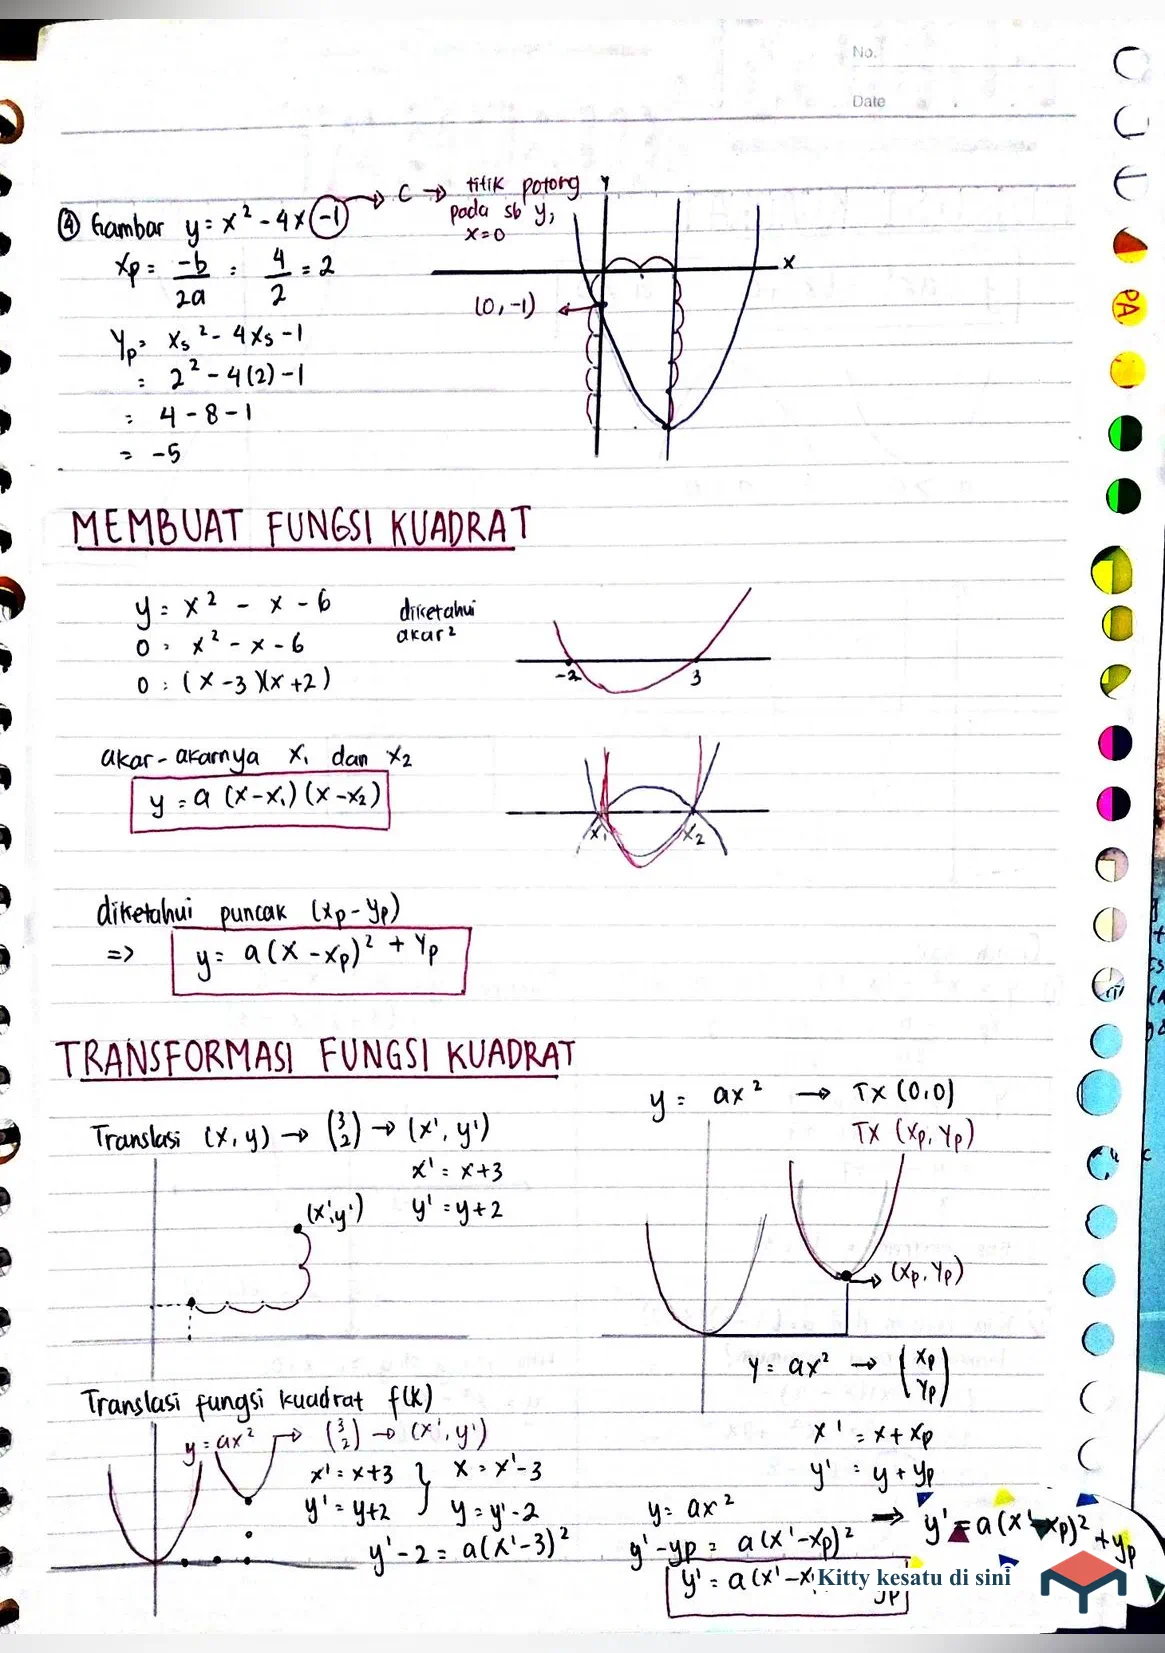 No.
Date
④ Gambar y = x² - 4x -1 → C → titik potong
pada sb y,
x=0
Xp = -b/2a = 4/2 = 2
Yp = xs² - 4xs - 1
= 2² - 4(2) - 1
= 4 - 8 - 1
= -5
Y
X
(0, -1)
MEMBUAT FUNGSI KUADRAT
y = x² - x - 6
0 = x² - x - 6
0 = (x - 3)(x + 2)
diketahui
akar²
-2 3
akar-akarnya x₁ dan x₂
y = a (x-x₁) (x-x₂)
x₁ x₂
diketahui puncak (xp - yp)
=> y = a(x - xp)² + yp
TRANSFORMASI FUNGSI KUADRAT
Translasi (x, y) → (3 2) → (x', y')
x' = x+3
y' = y+2
(x',y')
y = ax² → TX (0,0)
TX (xp, yp)
(xp, yp)
y = ax² → (xp yp)
x' = x + xp
y' = y + yp
Translasi fungsi kuadrat f(x)
y = ax² → (3 2) → (x', y')
x' = x+3 } x = x'-3
y' = y+2 } y = y'-2
y'-2 = a(x'-3)²
y = ax²
y'-yp = a(x'-xp)² ⇒ y' = a(x'-xp)² + yp
y' = a(x'-x
yp
Kitty kesatu di sini
PA